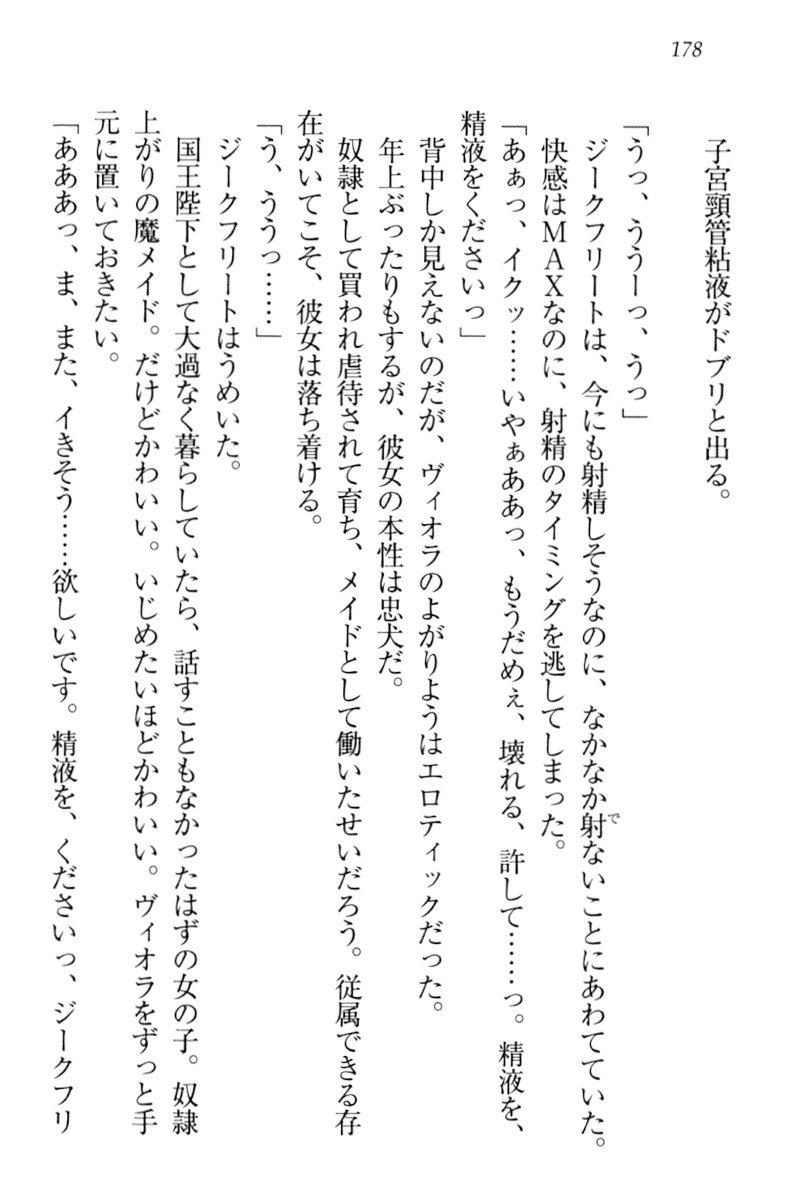 178
子宮頸管粘液がドブリと出る。
「うっ、ううーっ、うっ」
ジークフリートは、今にも射精しそうなのに、なかなか射ないことにあわてていた。
快感はMAXなのに、射精のタイミングを逃してしまった。
「あぁっ、イクッ……いやぁああっ、もうだめぇ、壊れる、許して……っ。精液を、
精液をくださいっ」
背中しか見えないのだが、ヴィオラのよがりようはエロティックだった。
年上ぶったりもするが、彼女の本性は忠犬だ。
奴隷として買われ虐待されて育ち、メイドとして働いたせいだろう。従属できる存
在がいてこそ、彼女は落ち着ける。
「う、ううっ……」
ジークフリートはうめいた。
国王陛下として大過なく暮らしていたら、話すこともなかったはずの女の子。奴隷
上がりの魔メイド。だけどかわいい。いじめたいほどかわいい。ヴィオラをずっと手
元に置いておきたい。
「あああっ、ま、また、イきそう……欲しいです。精液を、くださいっ、ジークフリ